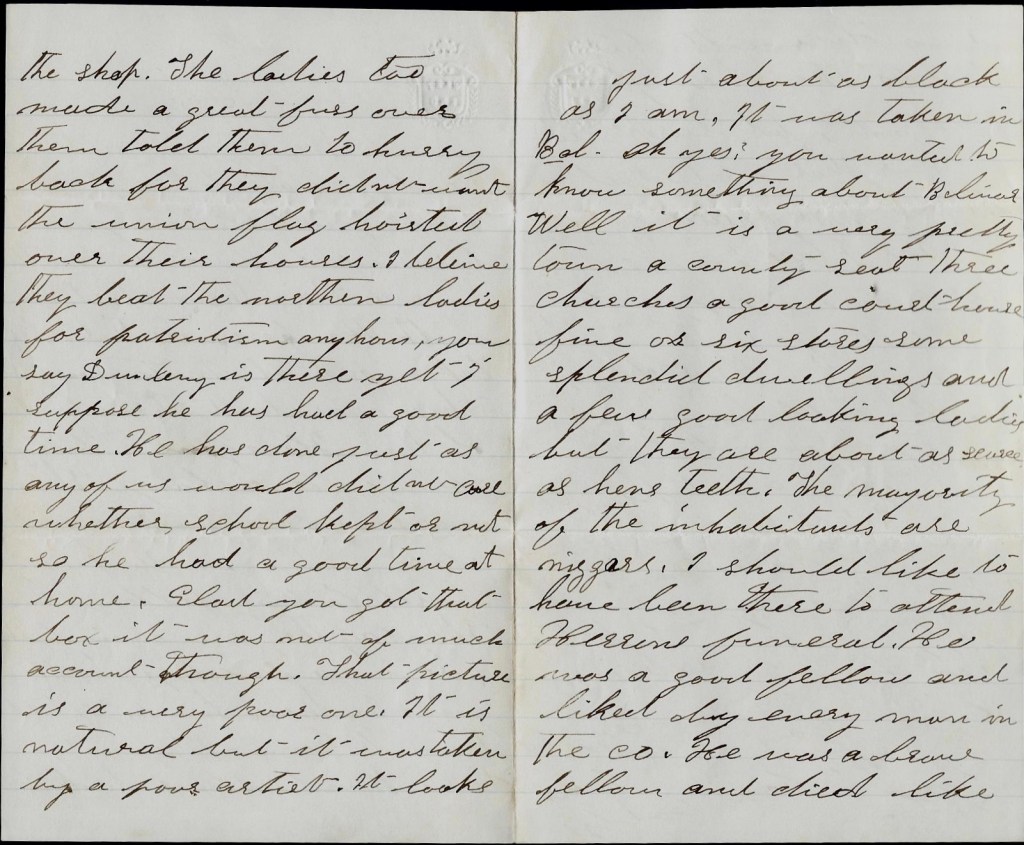 the shop. The ladies too
made a great fuss over
them told them to hurry
back for they didnt want
the union flag hoisted
over their houses. I beleive
they beat the northen ladies
for patriotism anyhow, you
say Dunleny is there yet I
suppose he has had a good
time. He has done just as
any of us would didnt care
whether school kept or not
so he had a good time at
home. Glad you got that
box it was not of much
account though. That picture
is a very poor one. It is
natural but it was taken
by a poor artist. It looks
just about as black
as I am. It was taken in
Bol. oh yes! you wanted to
know something about Bolivar
Well it is a very pretty
town a county seat three
churches a good court house
five or six stores some
splendid dwellings and
a few good looking ladies
but they are about as scarce
as hens teeth. The mayority
of the inhabitants are
niggers. I should like to
have been there to attend
Herrons funeral. He
was a good fellow and
liked by every man in
the co. He was a brave
fellow and died like